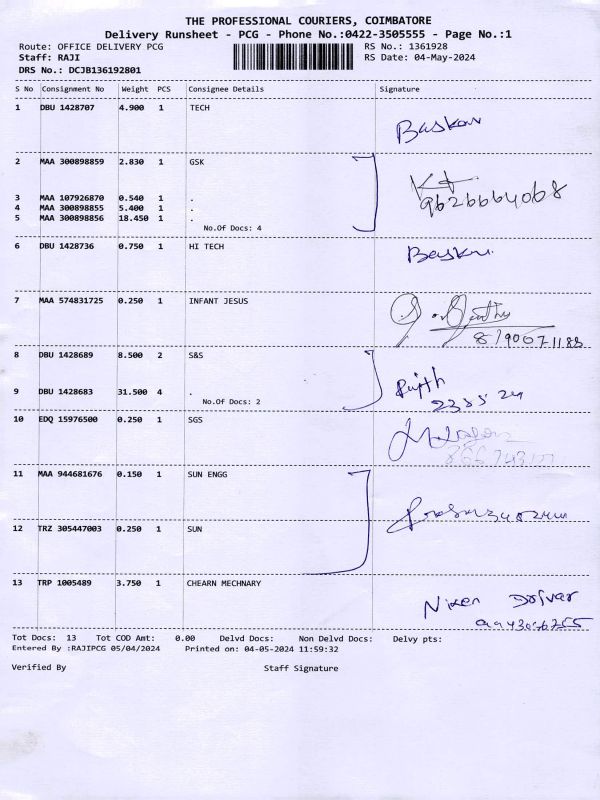 THE PROFESSIONAL COURIERS, COIMBATORE
Delivery Runsheet - PCG - Phone No.:0422-3505555 - Page No.:1
Route: OFFICE DELIVERY PCG RS No.: 1361928
Staff: RAJI RS Date: 04-May-2024
DRS No.: DCJB136192801
S No Consignment No Weight PCS Consignee Details Signature
1 DBU 1428707 4.900 1 TECH
Baskar
2 MAA 300898859 2.830 1 GSK
9626664068
3 MAA 107926870 0.540 1 .
4 MAA 300898855 5.400 1 .
5 MAA 300898856 18.450 1 .
No.Of Docs: 4
6 DBU 1428736 0.750 1 HI TECH
7 MAA 574831725 0.250 1 INFANT JESUS
8 DBU 1428689 8.500 2 S&S
9 DBU 1428683 31.500 4 .
No.Of Docs: 2
10 EDQ 15976500 0.250 1 SGS
11 MAA 944681676 0.150 1 SUN ENGG
12 TRZ 305447003 0.250 1 SUN
13 TRP 1005489 3.750 1 CHEARN MECHNARY
Tot Docs: 13 Tot COD Amt: 0.00 Delvd Docs: Non Delvd Docs: Delvy pts:
Entered By :RAJIPCG 05/04/2024 Printed on: 04-05-2024 11:59:32
Verified By Staff Signature